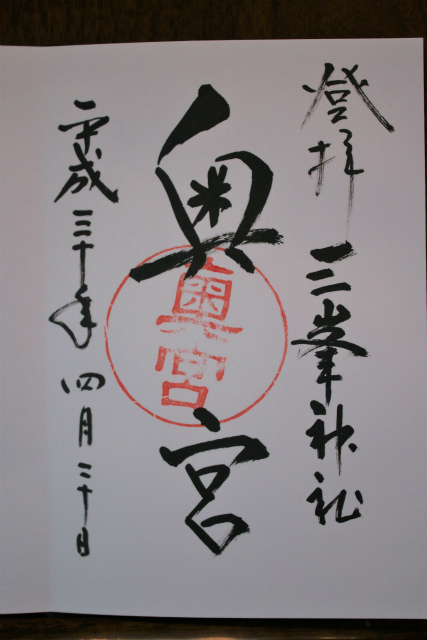 登拝 三峯神社
奥宮
奥宮
平成三十年四月二十日